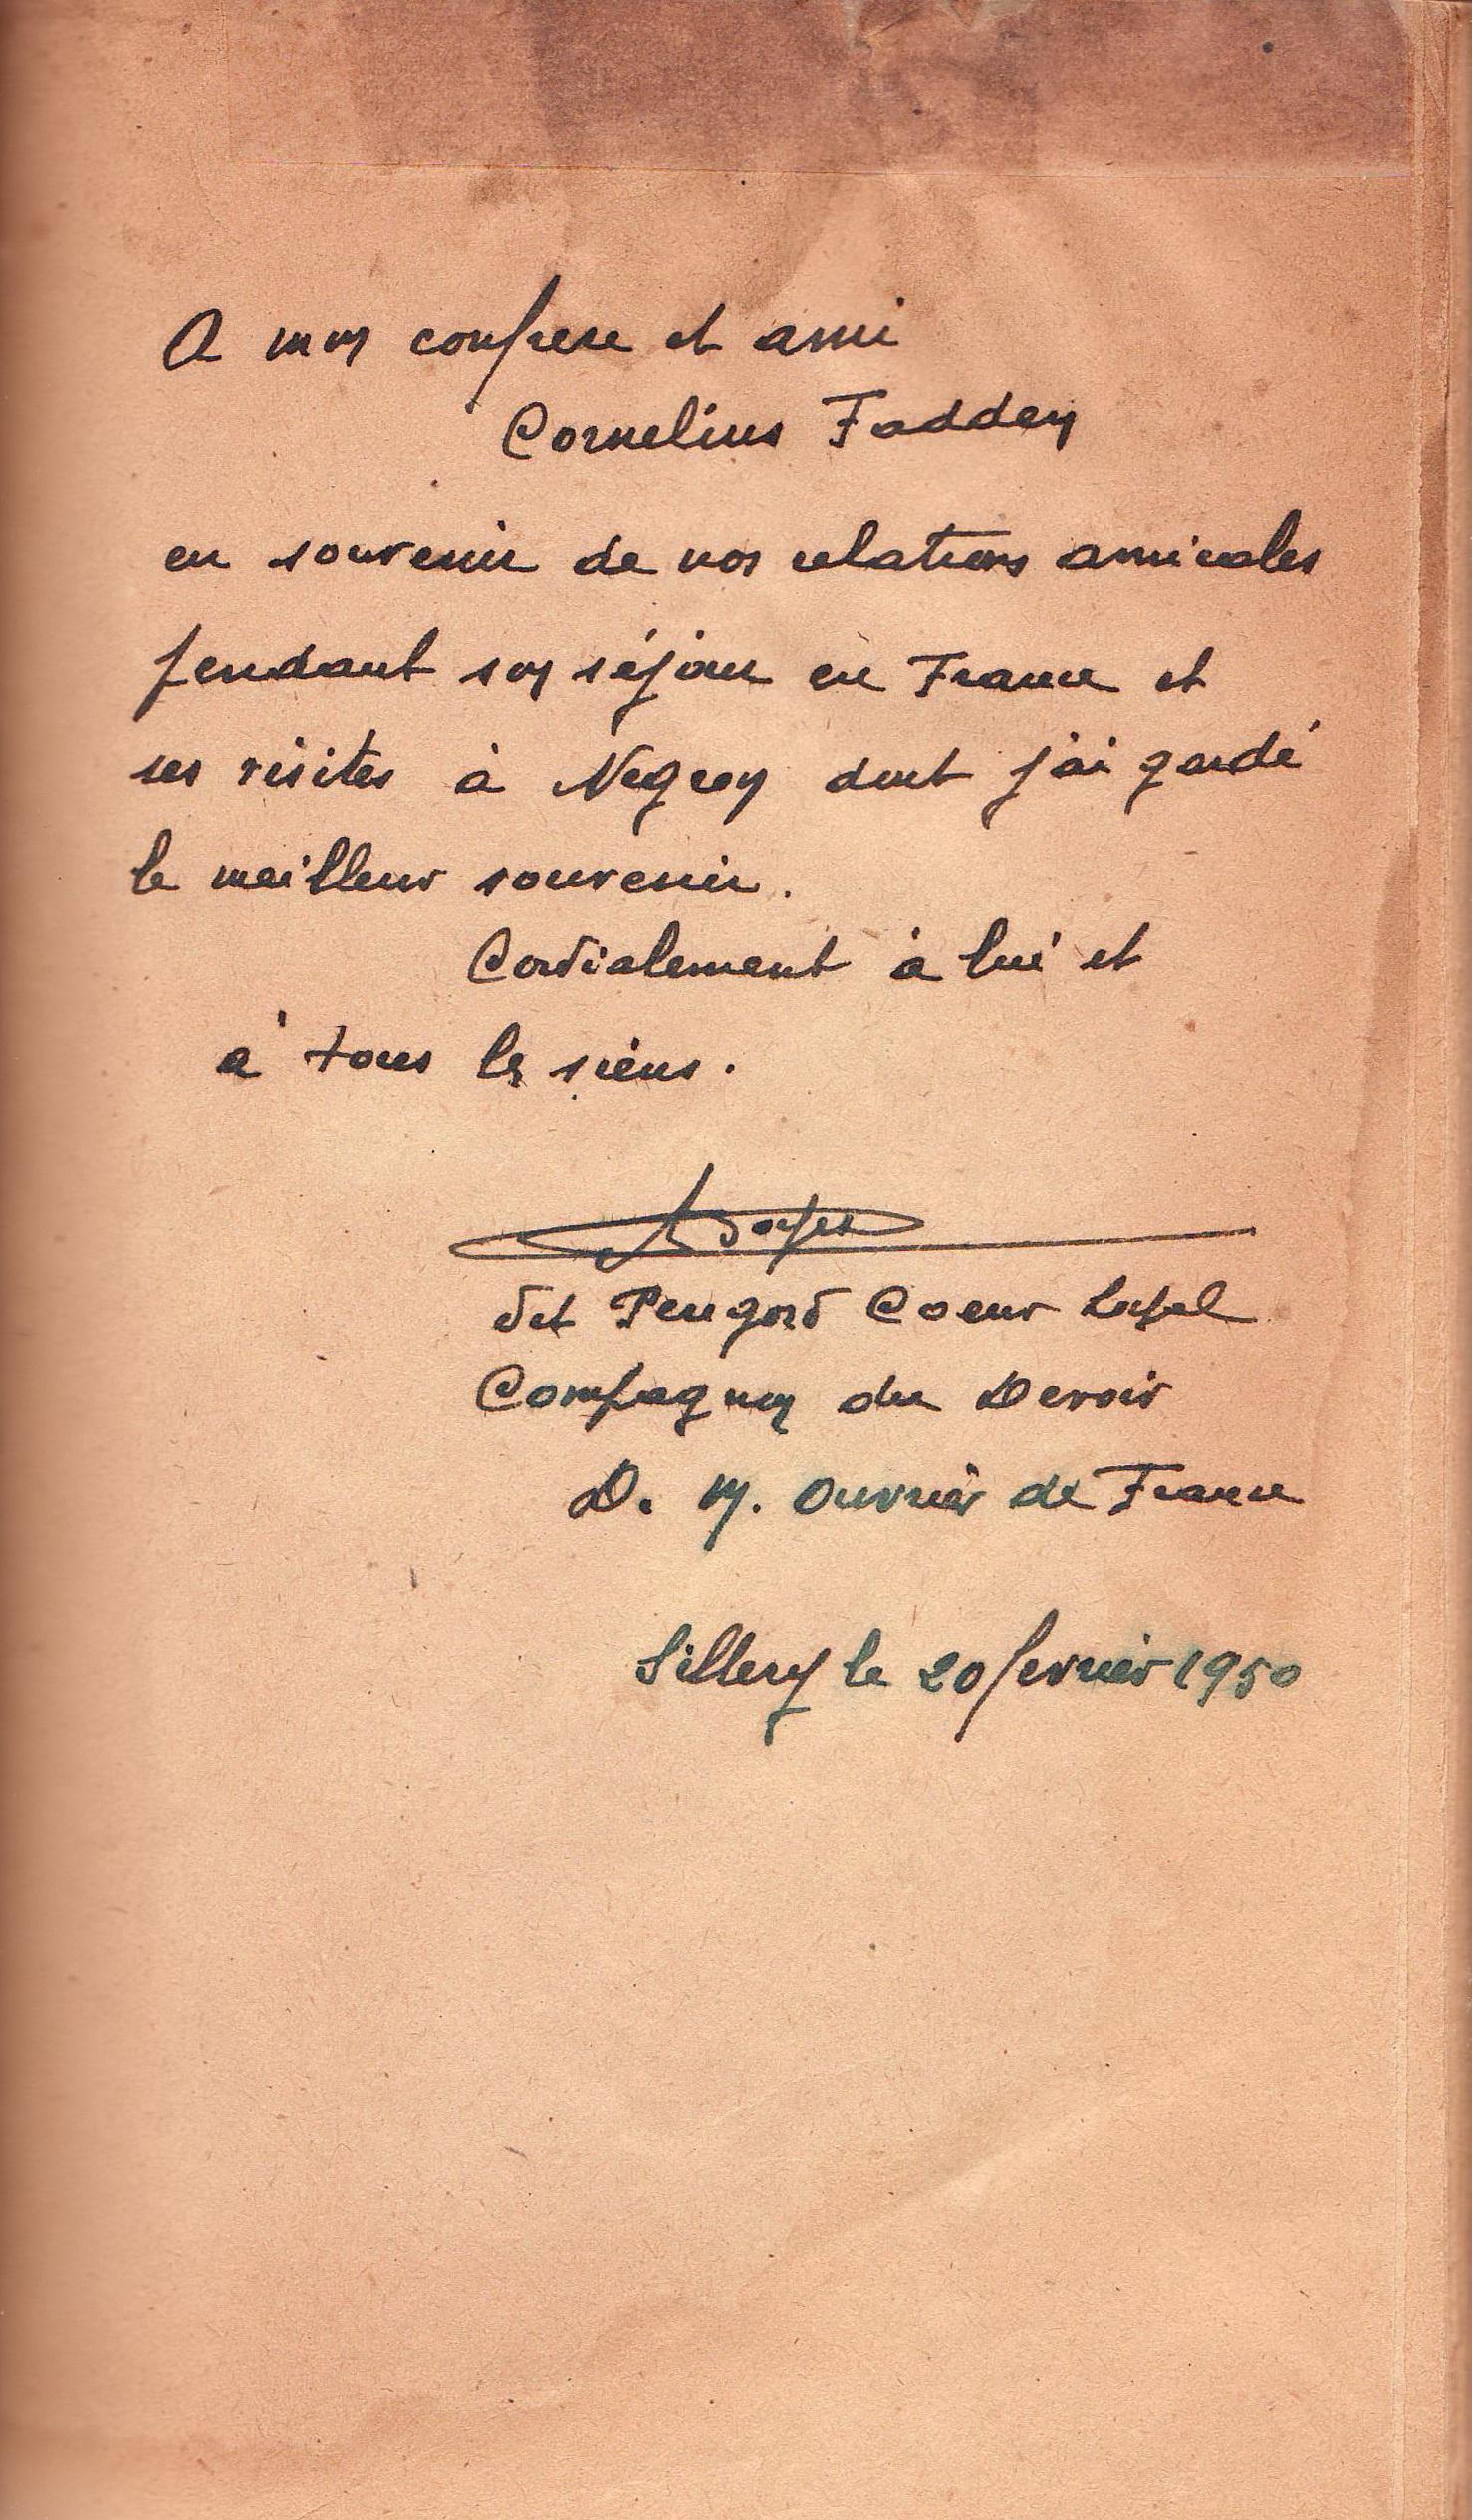 A mon confrere et ami
Cornelius Fadden
en souvenir de nos relations amicales
pendant son séjour en France et
ses visites à Negron dont j'ai gardé
le meilleur souvenir.
Cordialement à lui et
à tous les siens.
dit Perigord Coeur Loyal
Compagnon du Devoir
D. M. Ouvrier de France
Sillery le 20 fevrier 1950